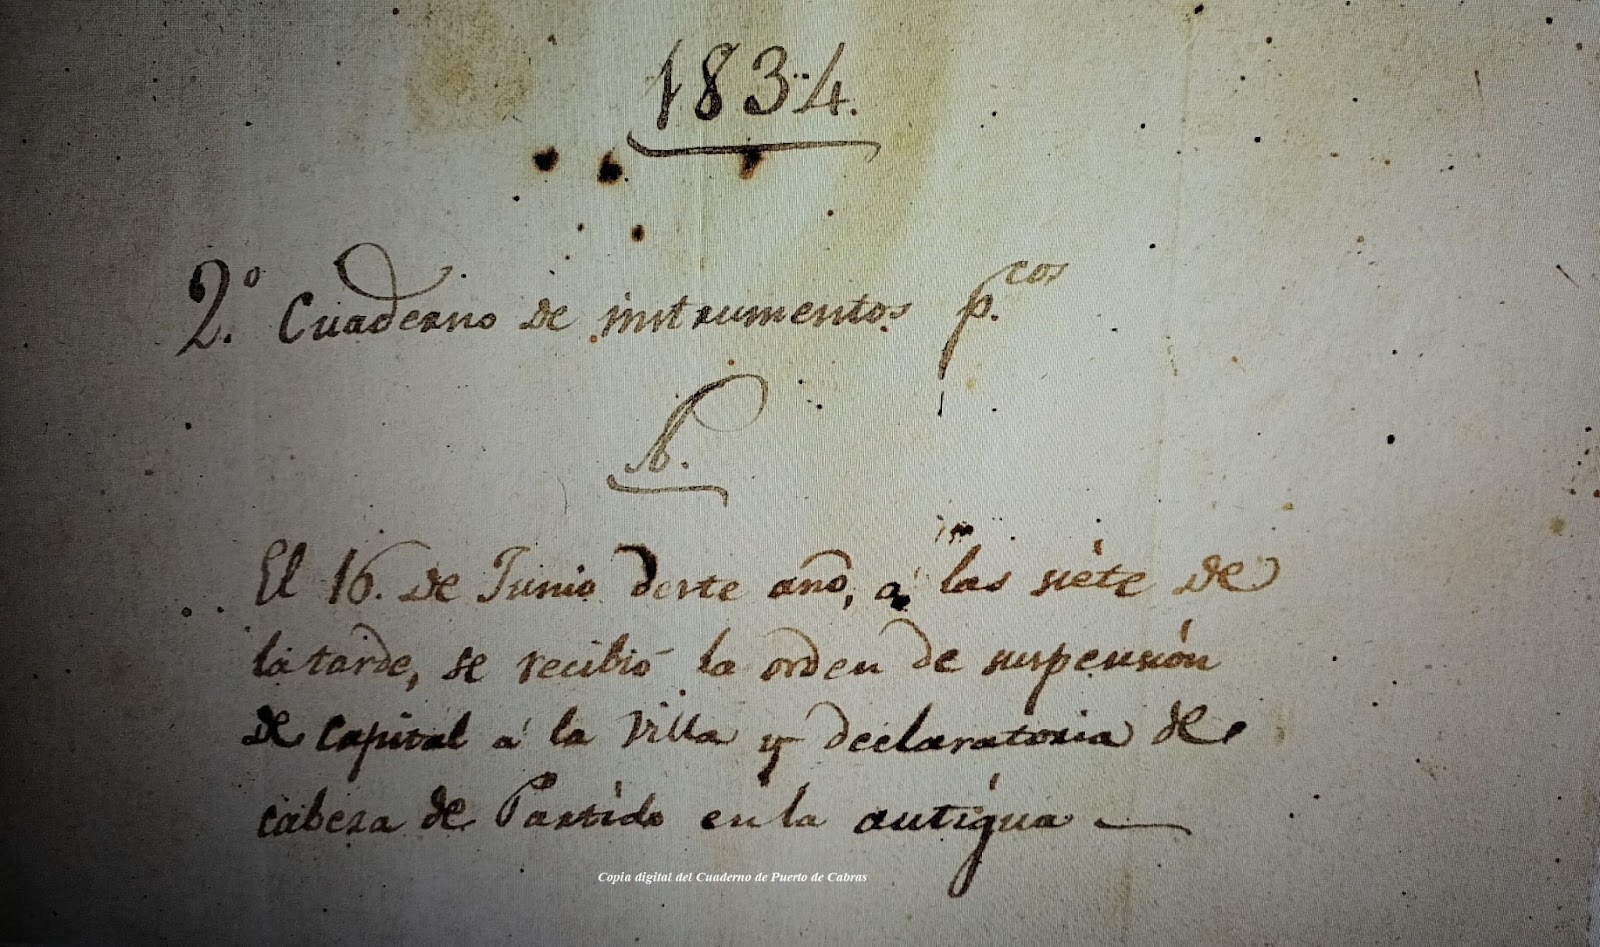 1834.
2.º Cuaderno de instrumentos p.cos
El 16. de Junio deste año, á las siete de
la tarde, se recibió la orden de suspensión
de Capital á la Villa y declaratoria de
cabeza de Partido en la antigua
Copia digital del Cuaderno de Puerto de Cabras